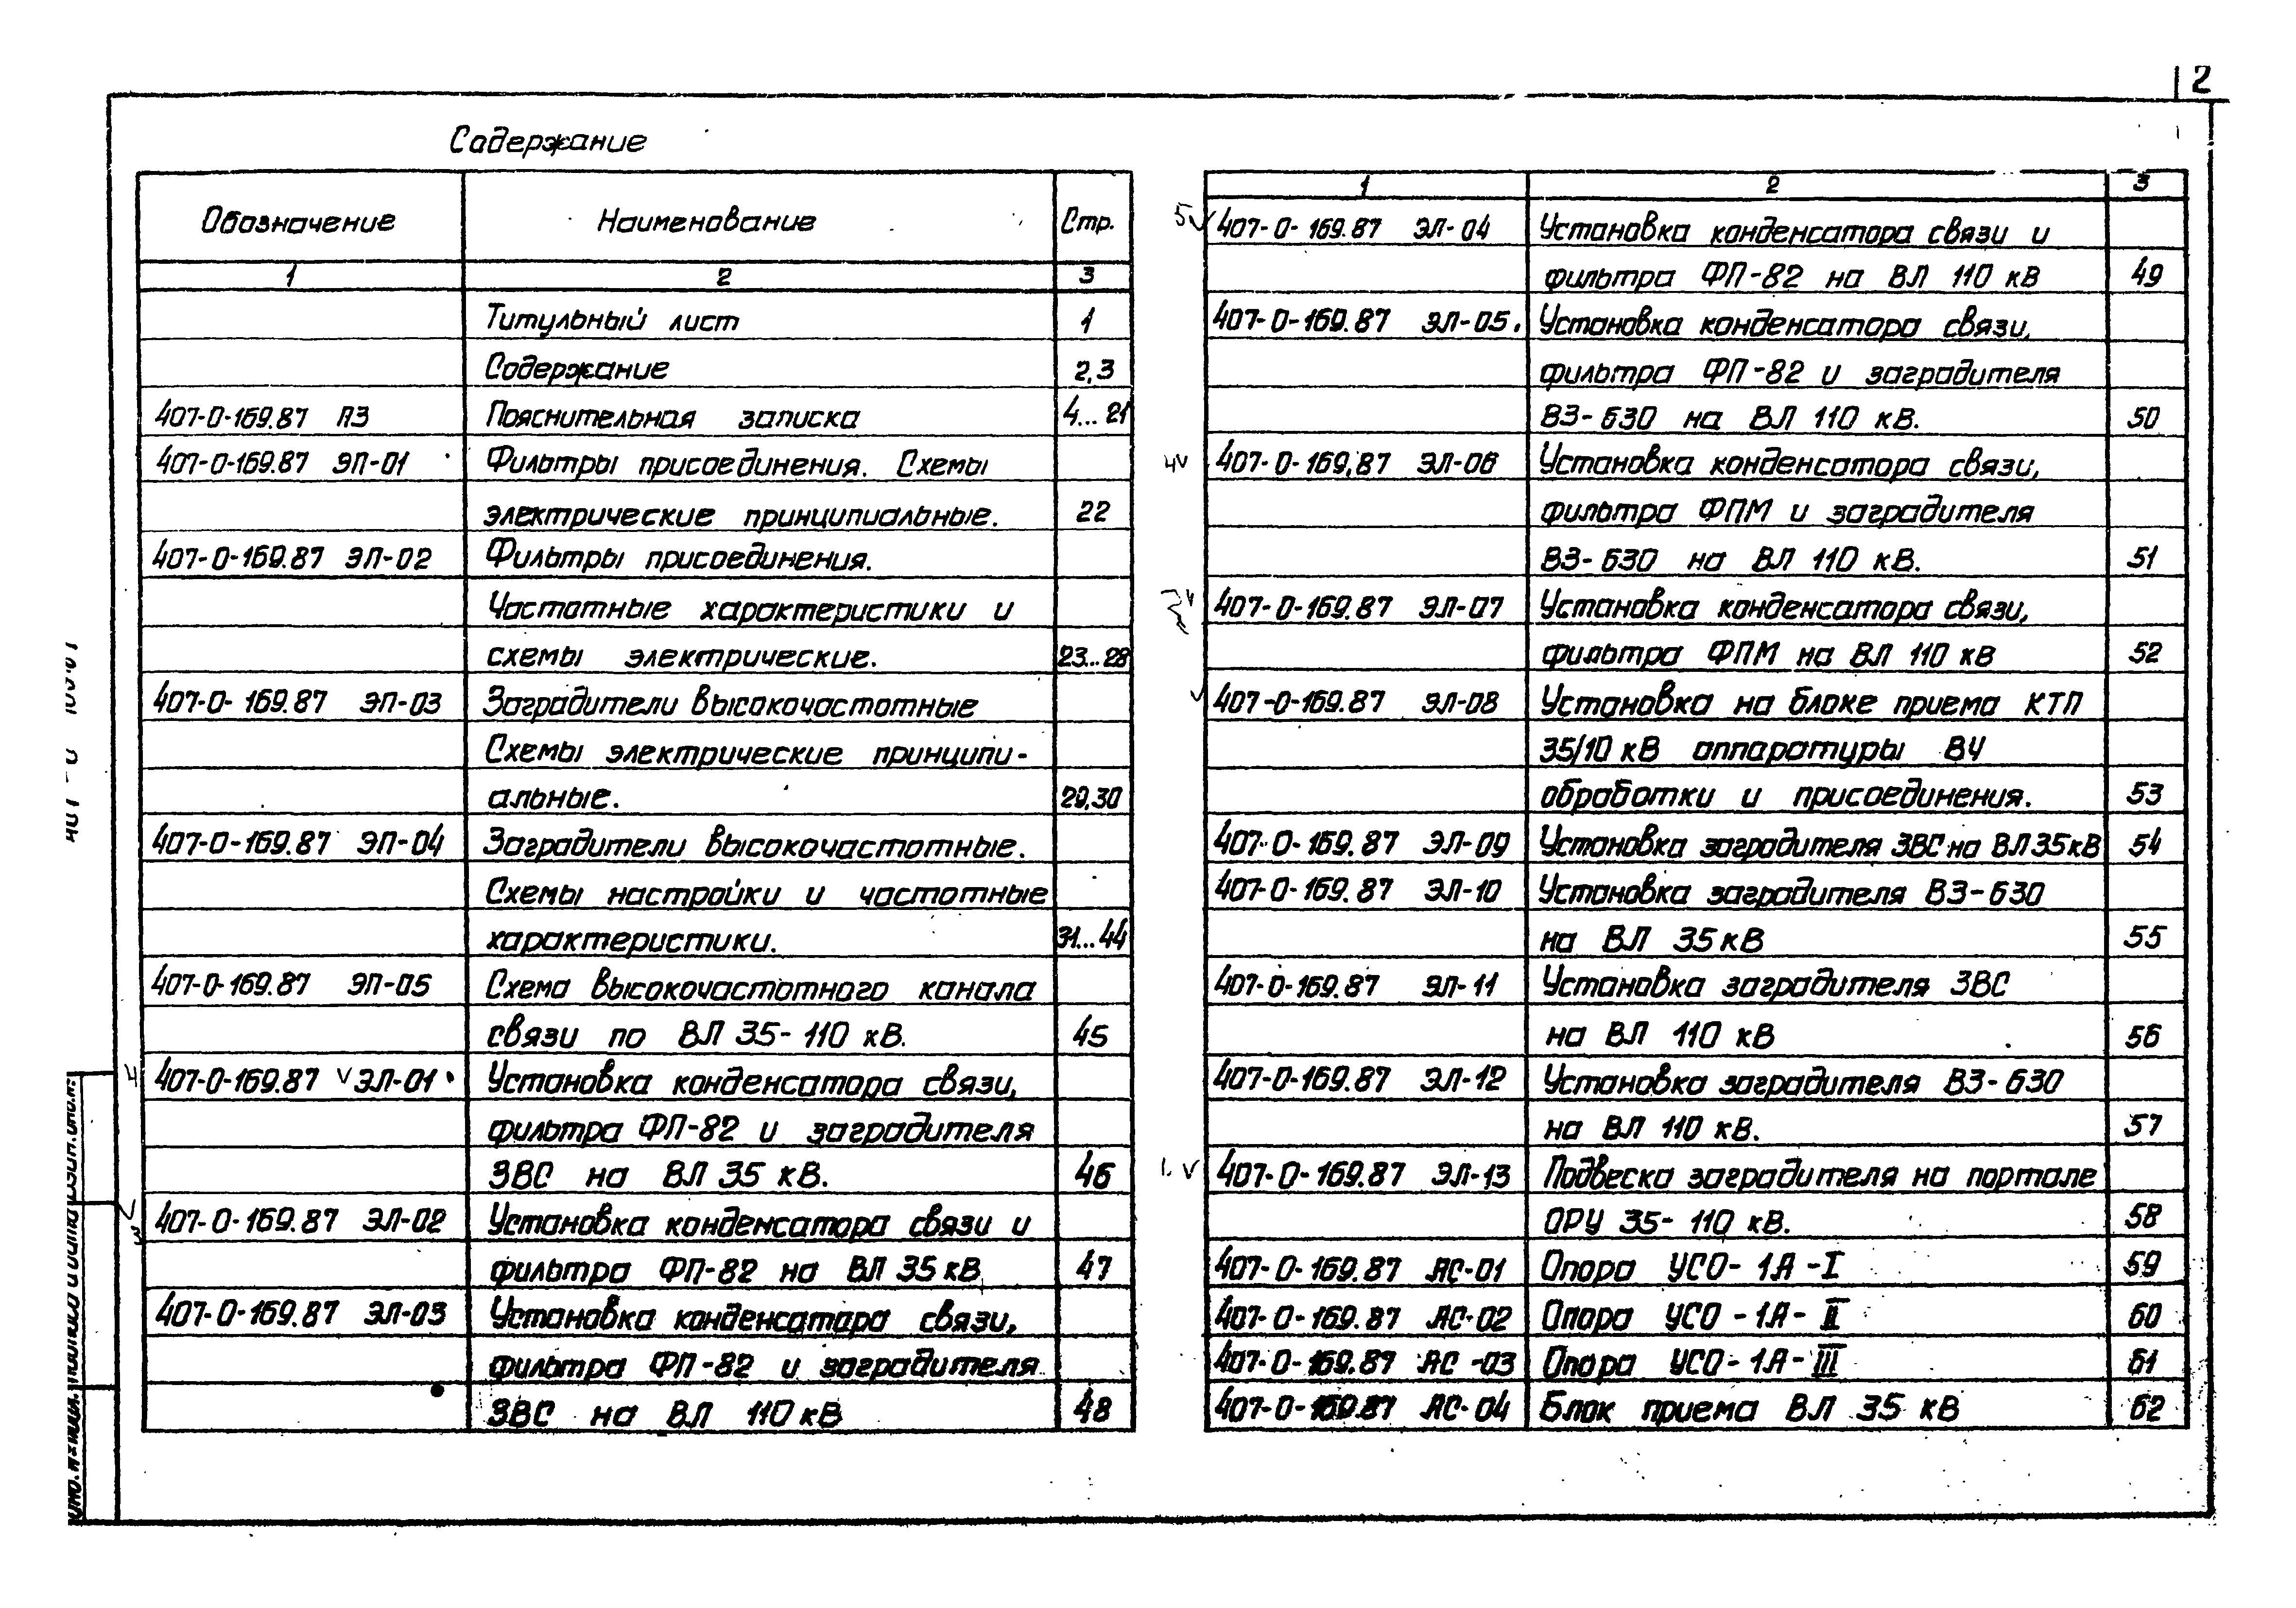 2
Содержание
Обозначение Наименование Стр.
1 2 3
Титульный лист 1
Содержание 2,3
407-0-169.87 ПЗ Пояснительная записка 4...21
407-0-169.87 ЭП-01 Фильтры присоединения. Схемы
электрические принципиальные. 22
407-0-169.87 ЭП-02 Фильтры присоединения.
Частотные характеристики и
схемы электрические. 23...28
407-0-169.87 ЭП-03 Заградители высокочастотные
Схемы электрические принципи-
альные. 29,30
407-0-169.87 ЭП-04 Заградители высокочастотные.
Схемы настройки и частотные
характеристики. 31...44
407-0-169.87 ЭП-05 Схема высокочастотного канала
связи по ВЛ 35-110 кВ. 45
407-0-169.87 ЭЛ-01 Установка конденсатора связи,
фильтра ФП-82 и заградителя
ЗВС на ВЛ 35 кВ. 46
407-0-169.87 ЭЛ-02 Установка конденсатора связи и
фильтра ФП-82 на ВЛ 35 кВ 47
407-0-169.87 ЭЛ-03 Установка конденсатора связи,
фильтра ФП-82 и заградителя
ЗВС на ВЛ 110 кВ 48
1 2 3
5 407-0-169.87 ЭЛ-04 Установка конденсатора связи и
фильтра ФП-82 на ВЛ 110 кВ 49
407-0-169.87 ЭЛ-05. Установка конденсатора связи,
фильтра ФП-82 и заградителя
ВЗ-630 на ВЛ 110 кВ. 50
4 407-0-169.87 ЭЛ-06 Установка конденсатора связи,
фильтра ФПМ и заградителя
ВЗ-630 на ВЛ 110 кВ. 51
407-0-169.87 ЭЛ-07 Установка конденсатора связи,
фильтра ФПМ на ВЛ 110 кВ 52
407-0-169.87 ЭЛ-08 Установка на блоке приема КТП
35/10 кВ аппаратуры ВЧ
обработки и присоединения. 53
407-0-169.87 ЭЛ-09 Установка заградителя ЗВС на ВЛ 35 кВ 54
407-0-169.87 ЭЛ-10 Установка заградителя ВЗ-630
на ВЛ 35 кВ 55
407-0-169.87 ЭЛ-11 Установка заградителя ЗВС
на ВЛ 110 кВ 56
407-0-169.87 ЭЛ-12 Установка заградителя ВЗ-630
на ВЛ 110 кВ. 57
1. 407-0-169.87 ЭЛ-13 Подвеска заградителя на портале
ОРУ 35-110 кВ. 58
407-0-169.87 АС-01 Опора УСО-1А-I 59
407-0-169.87 АС-02 Опора УСО-1А-II 60
407-0-169.87 АС-03 Опора УСО-1А-III 61
407-0-169.87 АС-04 Блок приема ВЛ 35 кВ 62